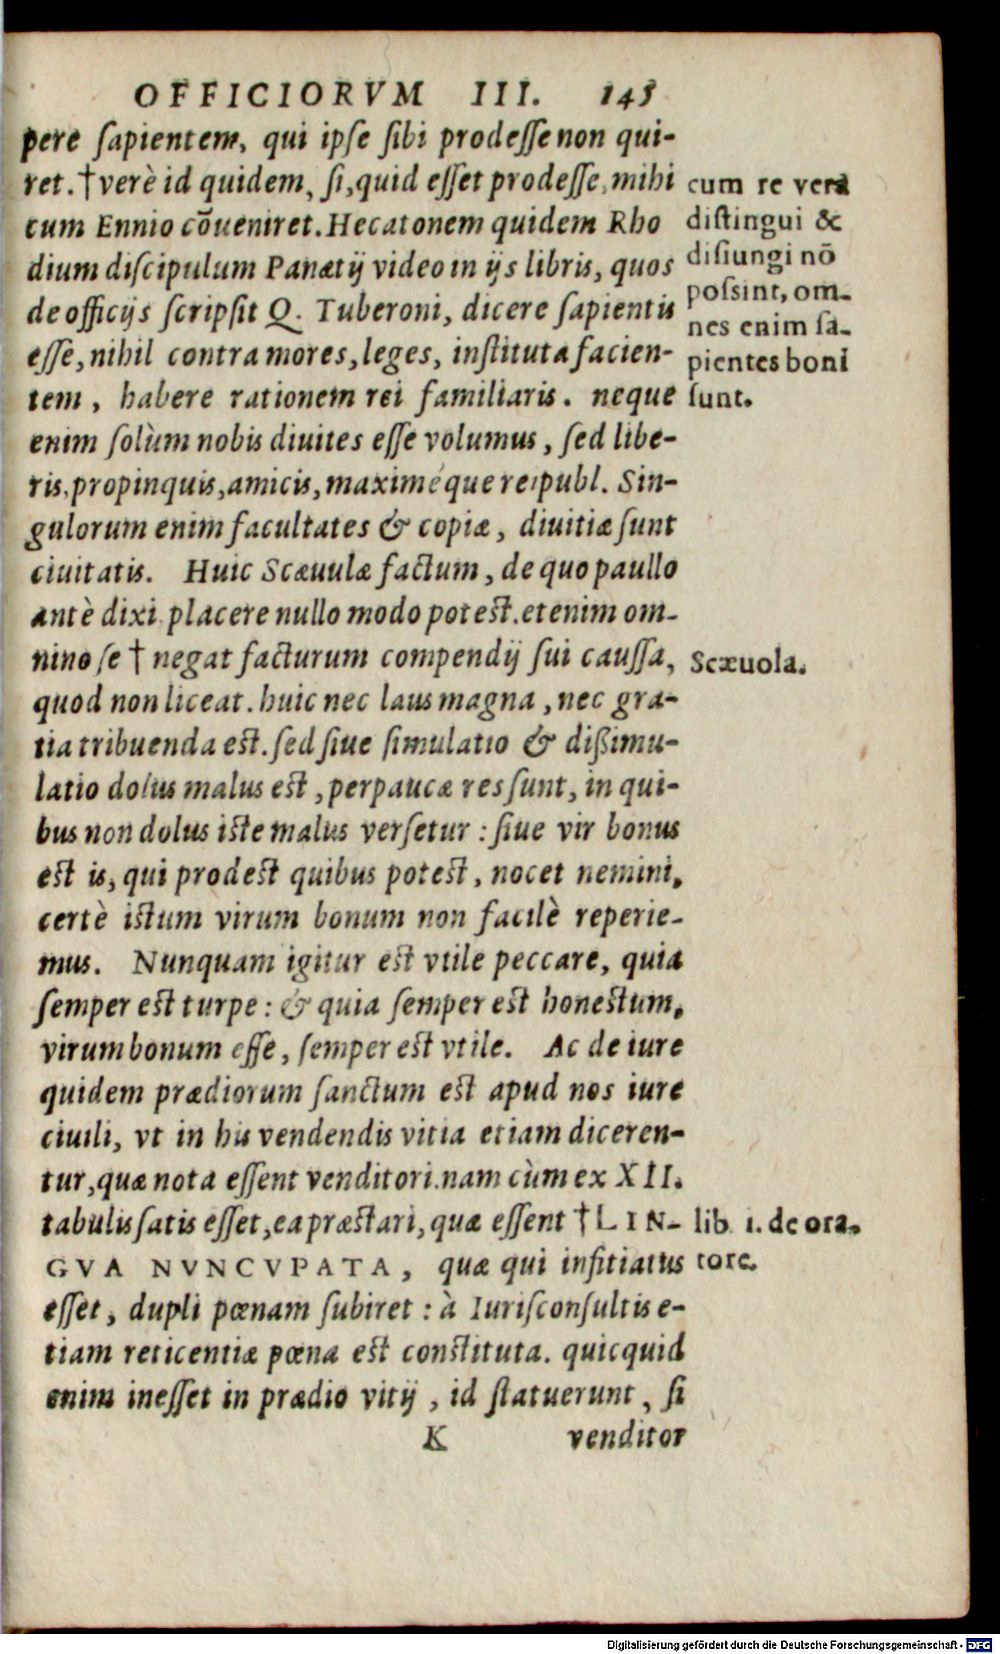 OFFICIORVM III. 145
pere ſapientem, qui ipſe ſibi prodeſſe non qui-
ret. † verè id quidem, ſi, quid eſſet prodeſſe, mihi
cum Ennio cōueniret. Hecatonem quidem Rho
dium diſcipulum Panætij video in ijs libris, quos
de officijs ſcripſit Q. Tuberoni, dicere ſapientis
eſſe, nihil contra mores, leges, inſtituta facien-
tem, habere rationem rei familiaris. neque
enim ſolùm nobis diuites eſſe volumus, ſed libe-
ris, propinquis, amicis, maximéque reipubl. Sin-
gulorum enim facultates & copiæ, diuitiæ ſunt
ciuitatis. Huic Scæuulæ factum, de quo paullo
antè dixi placere nullo modo poteſt. etenim om-
nino ſe † negat facturum compendij ſui cauſſa,
quod non liceat. huic nec laus magna, nec gra-
tia tribuenda eſt. ſed ſiue ſimulatio & dißimu-
latio dolus malus eſt, perpaucæ res ſunt, in qui-
bus non dolus iſte malus verſetur: ſiue vir bonus
eſt is, qui prodeſt quibus poteſt, nocet nemini,
certè iſtum virum bonum non facilè reperie-
mus. Nunquam igitur eſt vtile peccare, quia
ſemper eſt turpe: & quia ſemper eſt honeſtum,
virum bonum eſſe, ſemper eſt vtile. Ac de iure
quidem prædiorum ſanctum eſt apud nos iure
ciuili, vt in his vendendis vitia etiam diceren-
tur, quæ nota eſſent venditori. nam cùm ex XII.
tabulis ſatis eſſet, ea præſtari, quæ eſſent † LIN-
GVA NVNCVPATA, quæ qui inſitiatus
eſſet, dupli pœnam ſubiret: à Iuriſconſultis e-
tiam reticentiæ pœna eſt conſtituta. quicquid
enim ineſſet in prædio vitij, id ſtatuerunt, ſi
K venditor
cum re vera
diſtingui &
diſiungi nō
poſsint, om-
nes enim ſa-
pientes boni
ſunt.
Scæuola.
lib. 1. de ora-
tore.
Digitalisierung gefördert durch die Deutsche Forschungsgemeinschaft - DFG